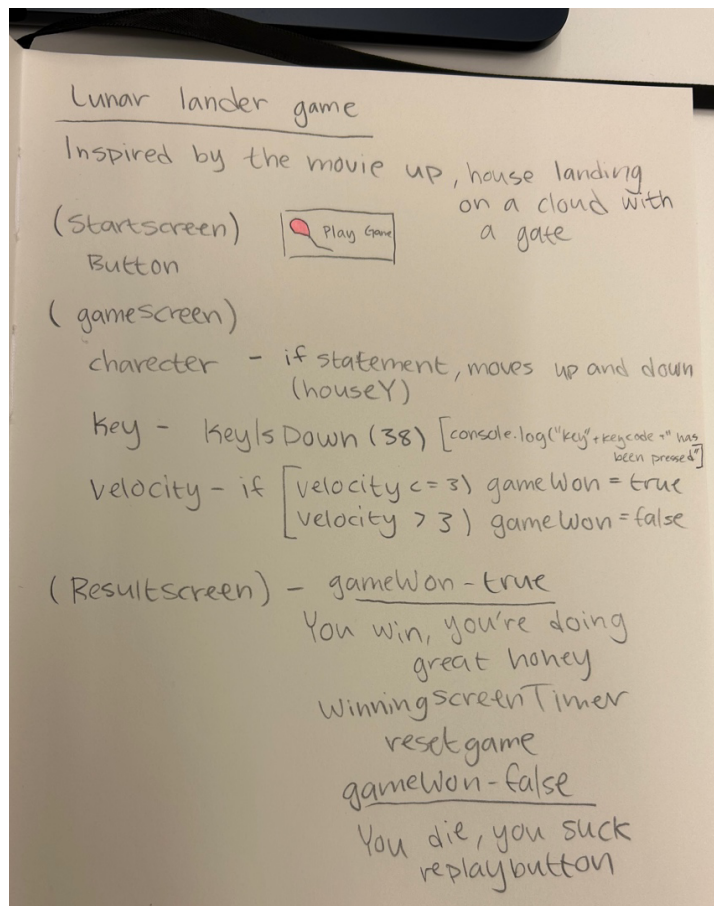 Lunar lander game
Inspired by the movie up, house landing
on a cloud with
a gate
(Startscreen)
Play Game
Button
(gamescreen)
charecter - if statement, moves up and down
(houseY)
Key - KeyIsDown (38) [console.log("key"+keycode+" has
been pressed"]
velocity - if [velocity <= 3) gameWon = true
[velocity > 3) gameWon = false
(Resultscreen) - gameWon - true
You win, you're doing
great honey
WinningscreenTimer
resetgame
gameWon - false
You die, you suck
replaybutton